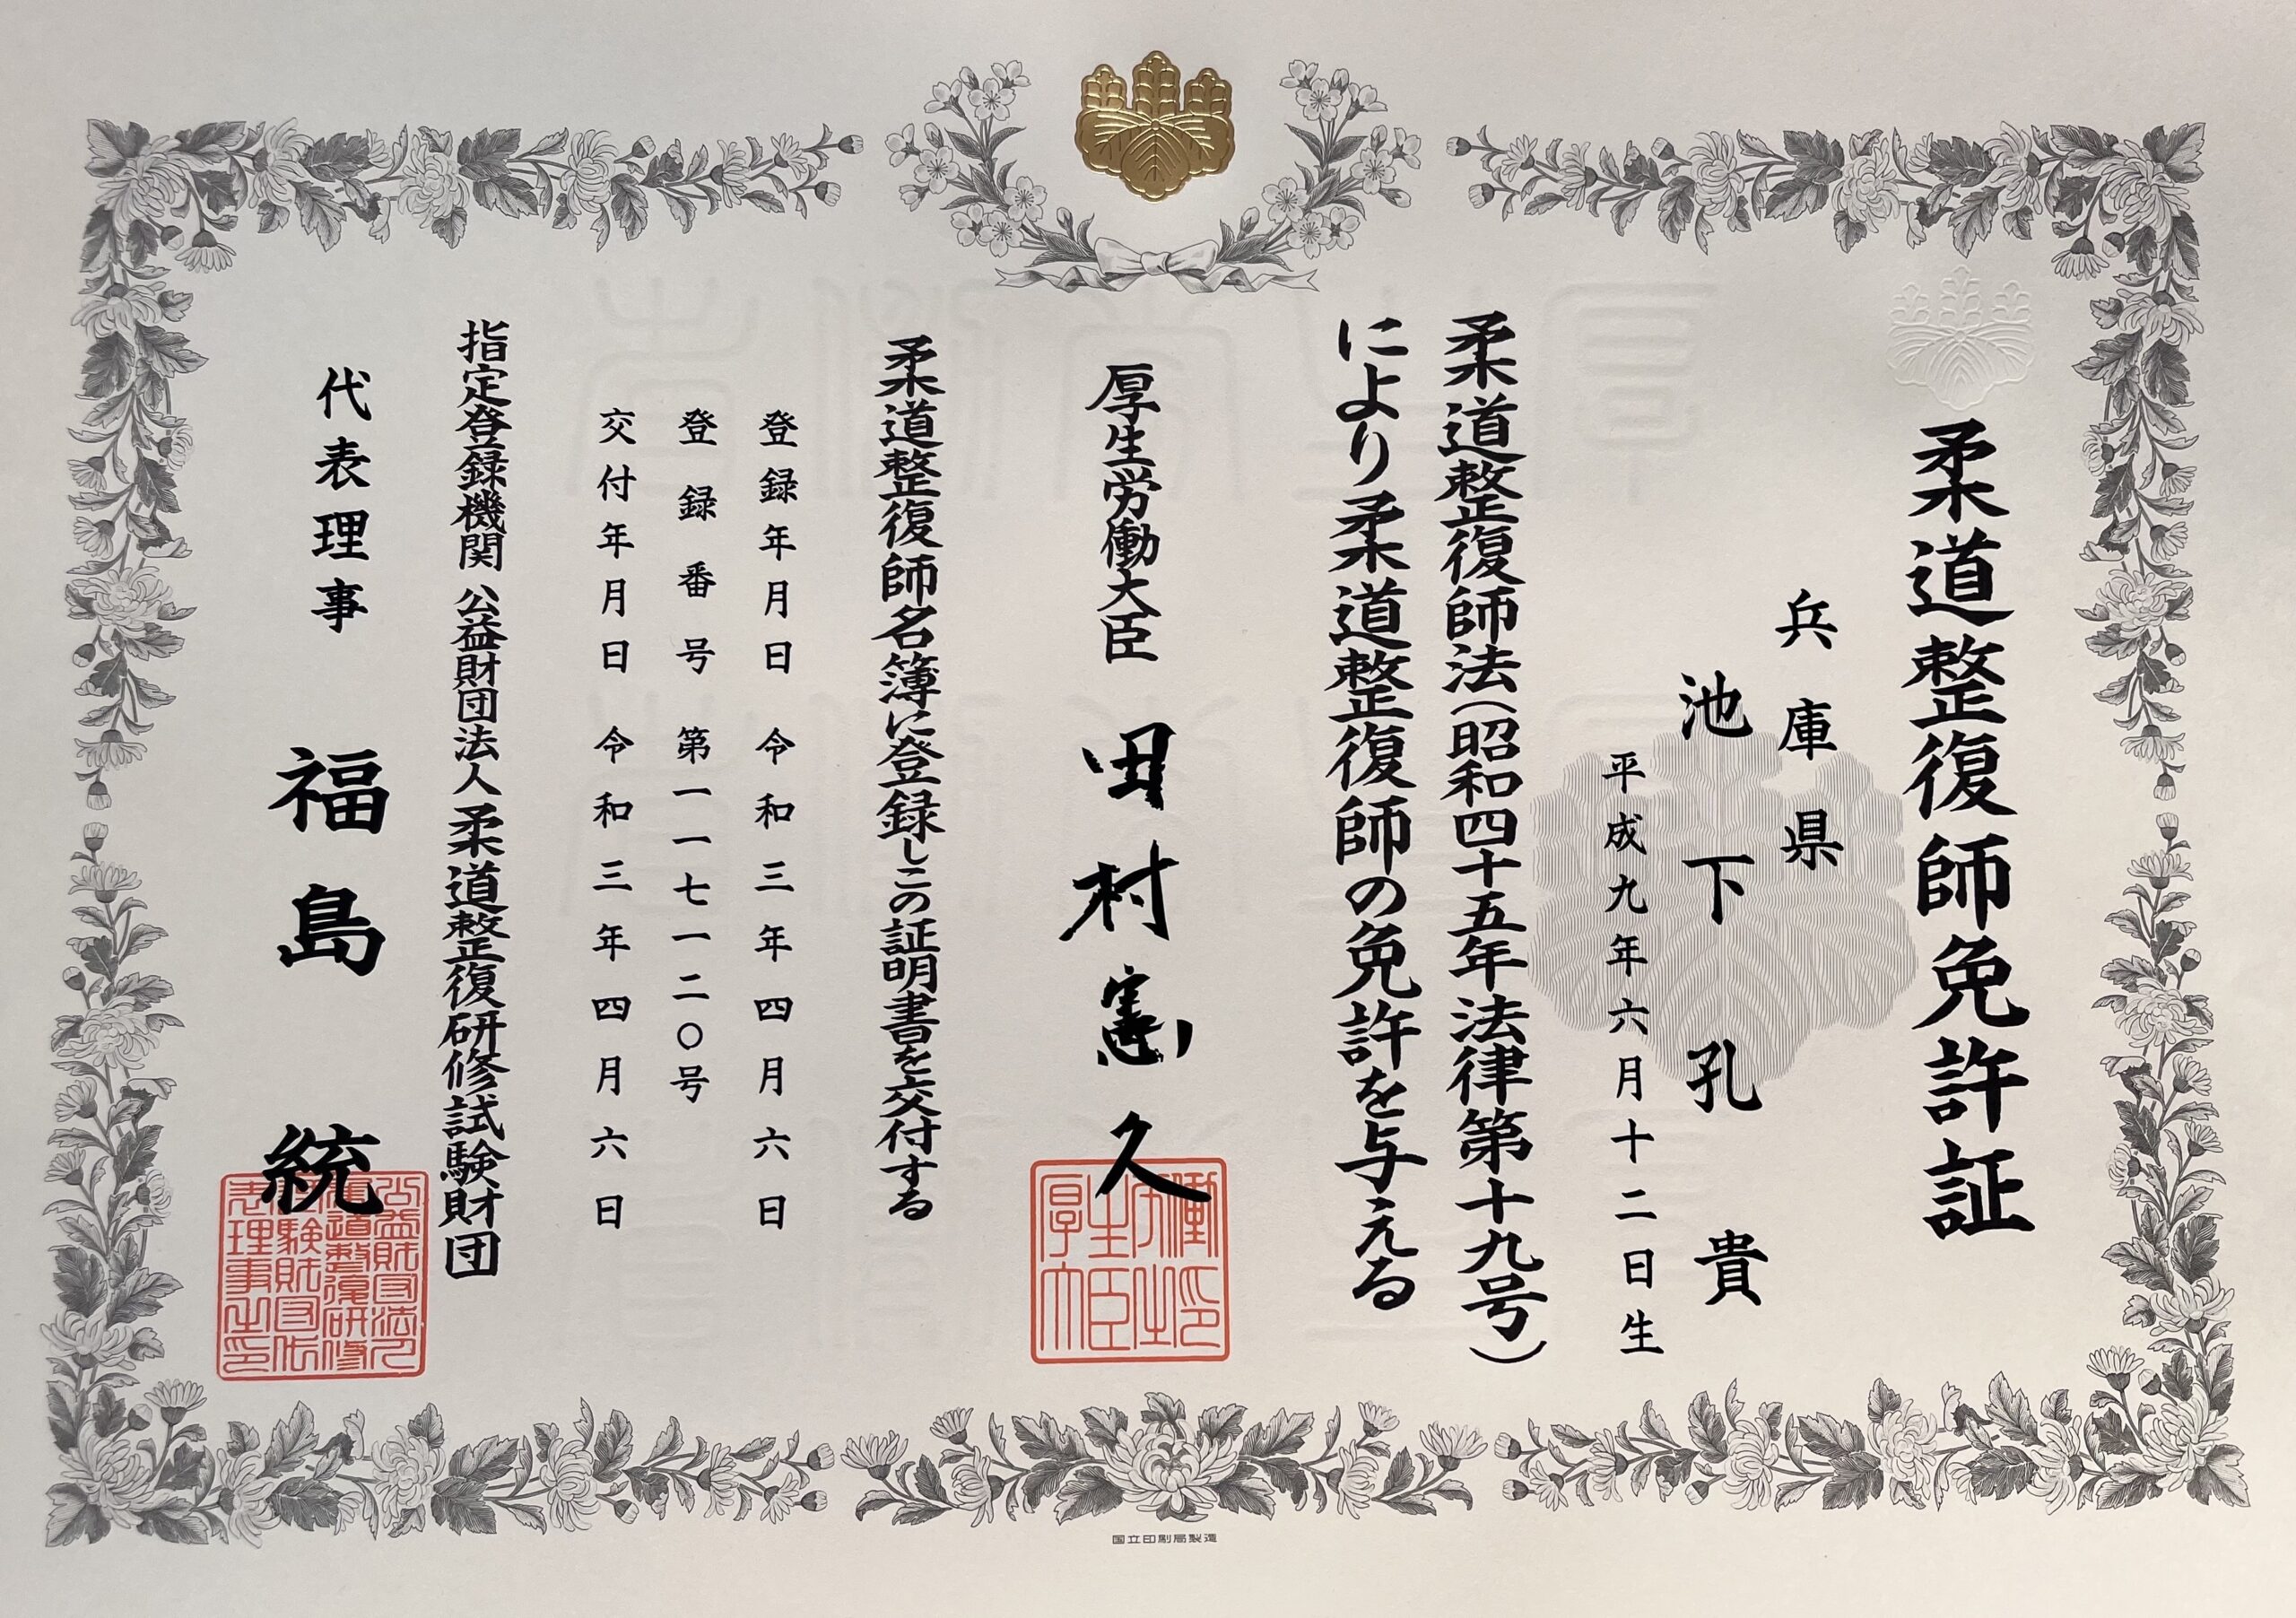 柔道整復師免許証
兵庫県
池下孔貴
平成九年六月十二日生
柔道整復師法（昭和四十五年法律第十九号）
により柔道整復師の免許を与える
厚生労働大臣 田村憲久
厚生労働大臣之印
柔道整復師名簿に登録しこの証明書を交付する
登録年月日 令和三年四月六日
登録番号 第一一七一二〇号
交付年月日 令和三年四月六日
指定登録機関 公益財団法人 柔道整復研修試験財団
代表理事 福島統
公益財団法人柔道整復研修試験財団代表理事之印
国立印刷局製造